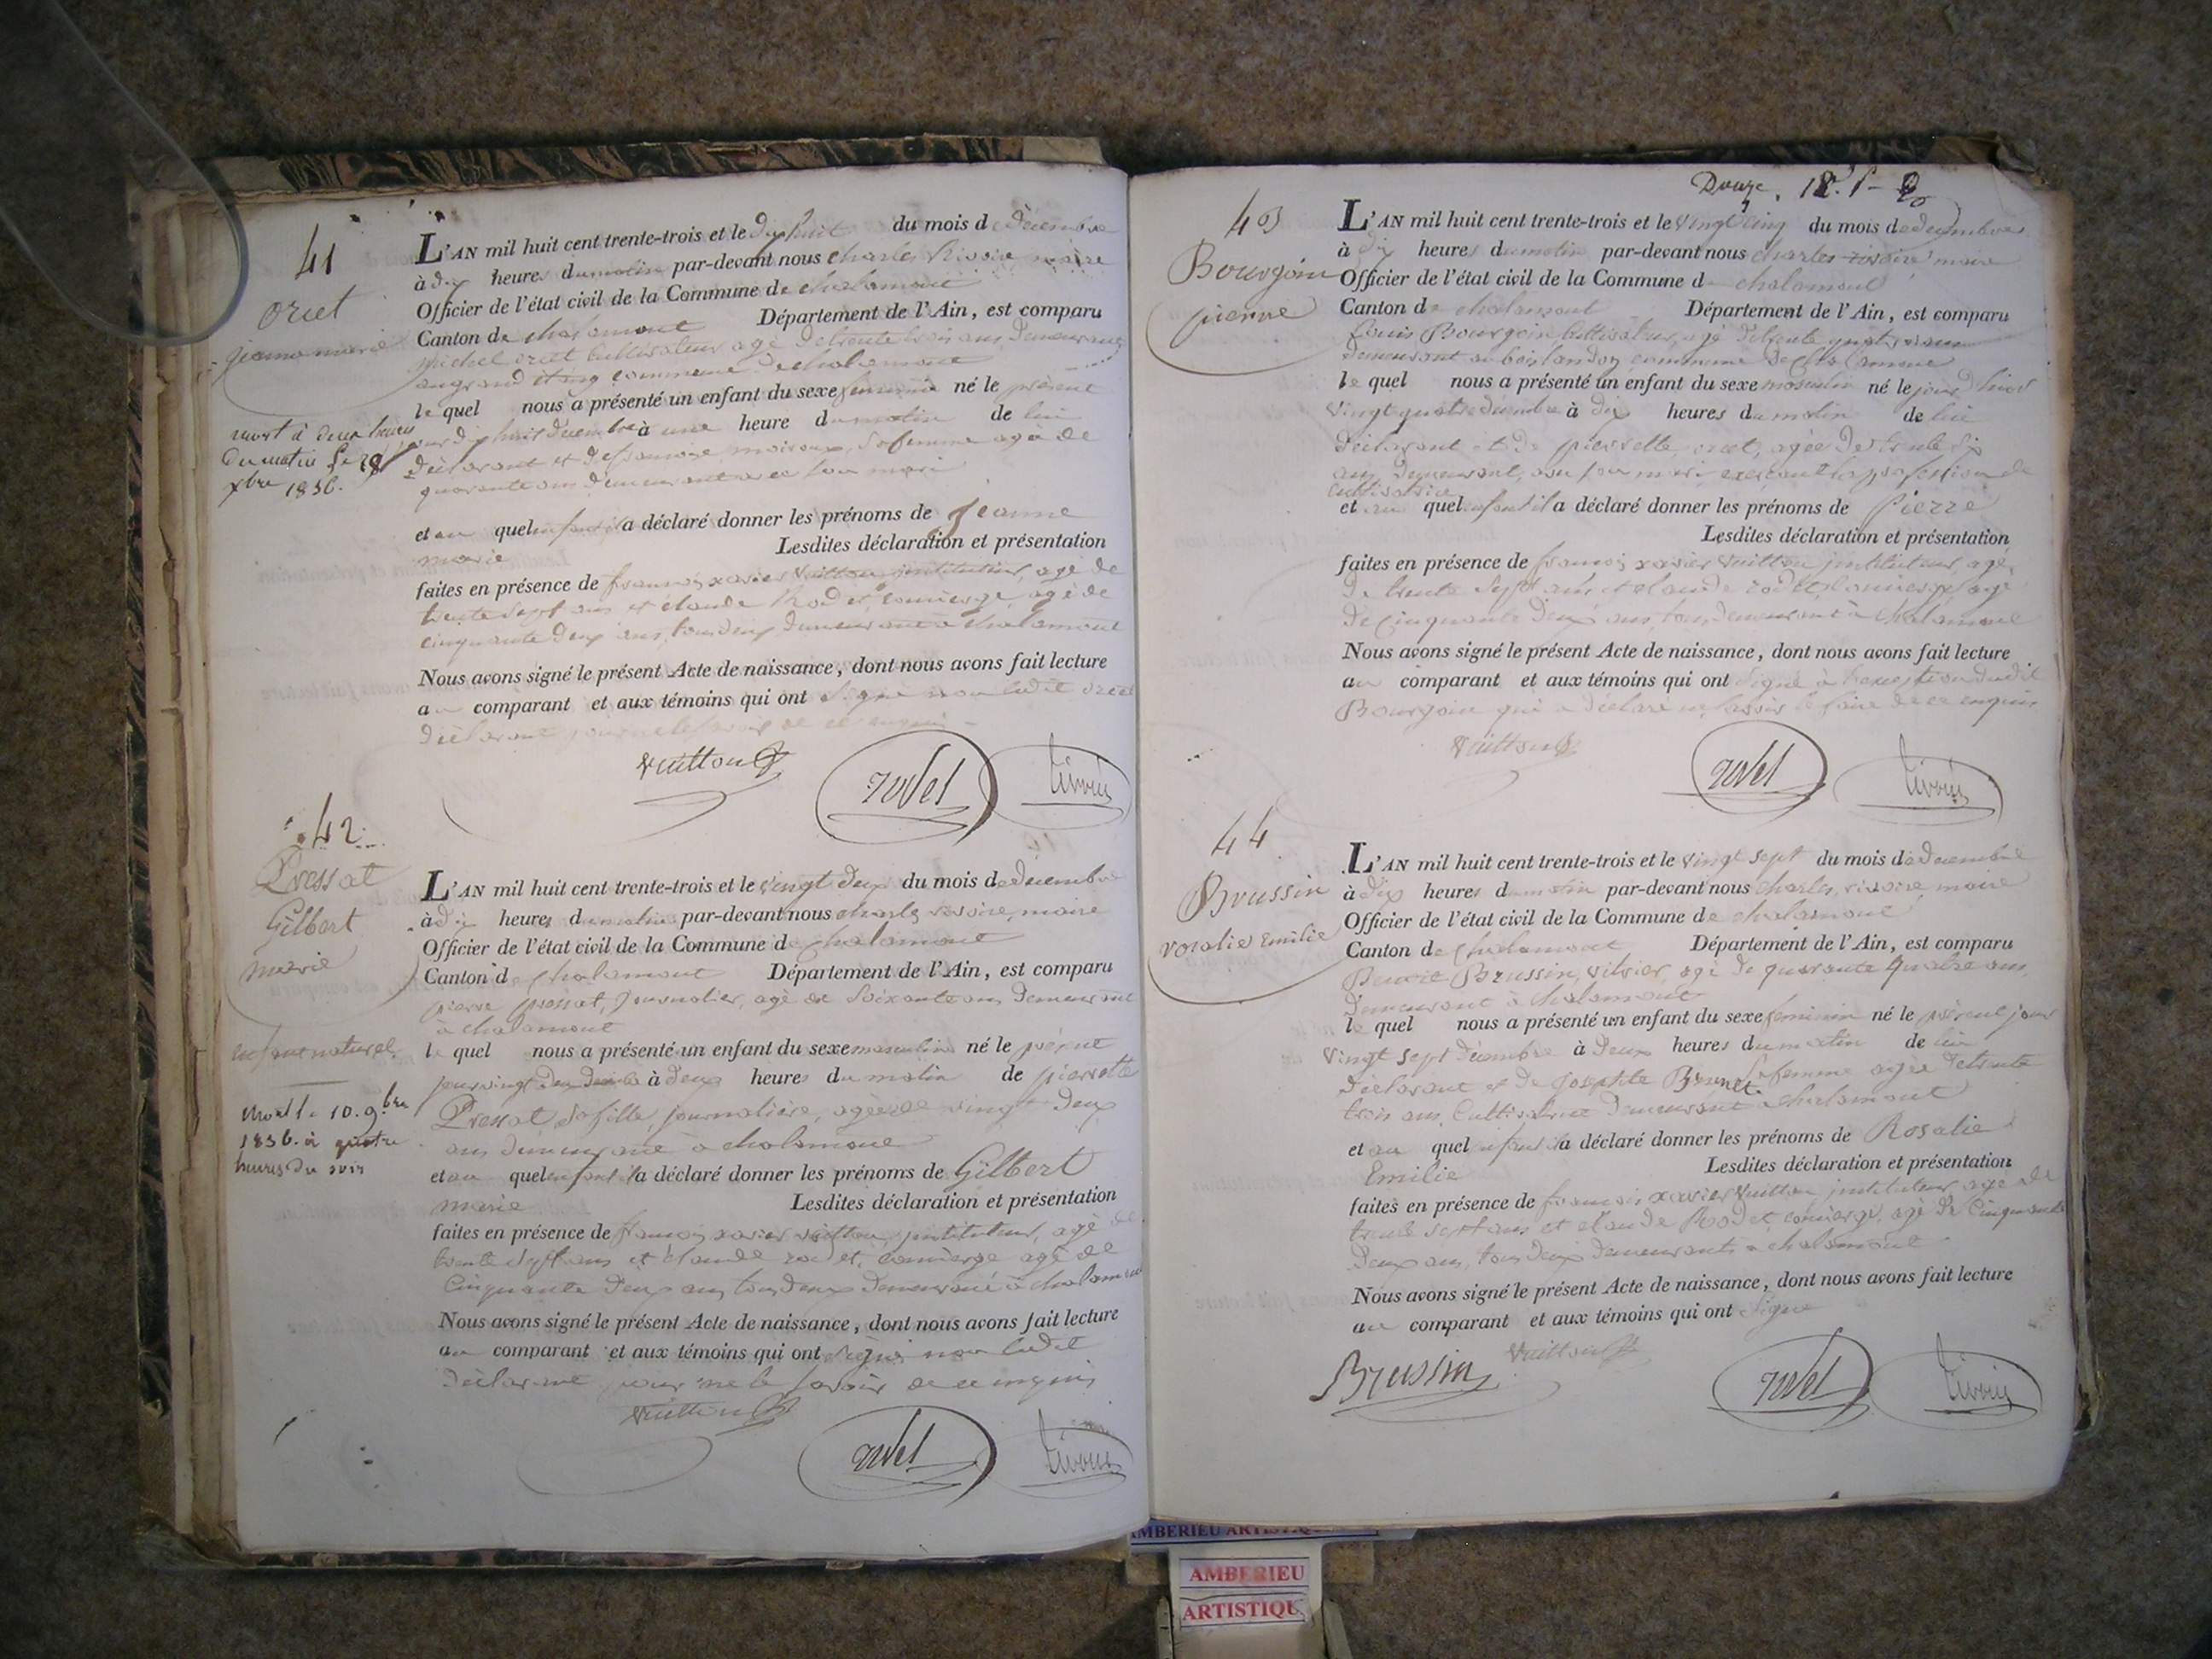 41
orcet
jeanne marie
mort à deux heures
du matin le 28
xbre 1836.
L'AN mil huit cent trente-trois et le dix huit du mois de décembre
à dix heures du matin par-devant nous charles Rivoire maire
Officier de l'état civil de la Commune de chalamont
Canton de chalamont Département de l'Ain, est comparu
michel orcet cultivateur agé de trente trois ans, demeurant
au grand étang commune de chalamont
le quel nous a présenté un enfant du sexe féminin né le présent
jour dix huit décembre à une heure du matin de lui
déclarant et de françoise moiroux, sa femme agée de
quarante ans demeurant avec son mari
et au quel enfant il a déclaré donner les prénoms de Jeanne
marie Lesdites déclaration et présentation
faites en présence de françois xavier Vuitton instituteur, agé de
trente sept ans et claude Rodet, concierge, agé de
cinquante deux ans, tous deux demeurant à chalamont
Nous avons signé le présent Acte de naissance, dont nous avons fait lecture
au comparant et aux témoins qui ont signé non ledit orcet
déclarant pour ne le savoir de ce enquis
Vuitton
rodet
rivoire
42
Pressat
Gilbert
marie
enfant naturel
Mort le 10. 9bre
1836. à quatre
heures du soir
L'AN mil huit cent trente-trois et le vingt deux du mois de décembre
à dix heures du matin par-devant nous charles rivoire, maire
Officier de l'état civil de la Commune de chalamont
Canton de chalamont Département de l'Ain, est comparu
pierre pressat, journalier, agé de soixante ans demeurant
à chalamont
le quel nous a présenté un enfant du sexe masculin né le présent
jour vingt deux décembre à deux heures du matin de pierrette
Pressat sa fille, journalière, agée de vingt deux
ans demeurant à chalamont
et au quel enfant il a déclaré donner les prénoms de Gilbert
marie Lesdites déclaration et présentation
faites en présence de françois xavier vuitton, instituteur, agé de
trente sept ans et claude rodet, concierge agé de
cinquante deux ans tous deux demeurant à chalamont
Nous avons signé le présent Acte de naissance, dont nous avons fait lecture
au comparant et aux témoins qui ont signé non ledit
déclarant pour ne le savoir de ce enquis
Vuitton
rodet
rivoire
Douze.
43
Bourgoin
pierre
L'AN mil huit cent trente-trois et le vingt cinq du mois de décembre
à dix heures du matin par-devant nous charles rivoire maire
Officier de l'état civil de la Commune de chalamont
Canton de chalamont Département de l'Ain, est comparu
Louis Bourgoin cultivateur, agé de trente quatre ans
demeurant au commune de chalamont
le quel nous a présenté un enfant du sexe masculin né le jour d'hier
vingt quatre décembre à dix heures du matin de lui
déclarant et de pierrette orcet, agée de trente six
ans, demeurant, avec son mari exerçant la profession de
cultivatrice
et au quel enfant il a déclaré donner les prénoms de Pierre
Lesdites déclaration et présentation
faites en présence de françois xavier vuitton instituteur, agé
de trente sept ans, et claude rodet, concierge agé
de cinquante deux ans, tous demeurant à chalamont
Nous avons signé le présent Acte de naissance, dont nous avons fait lecture
au comparant et aux témoins qui ont signé à l'exception dudit
Bourgoin qui a déclaré ne savoir le faire de ce enquis
Vuitton
rodet
rivoire
44
Brussin
rosalie Emilie
L'AN mil huit cent trente-trois et le vingt sept du mois de décembre
à dix heures du matin par-devant nous charles, rivoire, maire
Officier de l'état civil de la Commune de chalamont
Canton de chalamont Département de l'Ain, est comparu
Benoit Brussin, vitrier, agé de quarante quatre ans
demeurant à chalamont
le quel nous a présenté un enfant du sexe féminin né le présent jour
vingt sept décembre à deux heures du matin de lui
déclarant et de Josephte Brunet sa femme agée de trente
trois ans, cultivatrice demeurant à chalamont
et au quel enfant il a déclaré donner les prénoms de Rosalie
Emilie Lesdites déclaration et présentation
faites en présence de françois xavier Vuitton instituteur, agé de
trente sept ans et claude Rodet, concierge, agé de cinquante
deux ans, tous deux demeurants à chalamont
Nous avons signé le présent Acte de naissance, dont nous avons fait lecture
au comparant et aux témoins qui ont signé
Brussin
Vuitton
rodet
rivoire
AMBERIEU ARTISTIQUE
AMBERIEU
ARTISTIQU